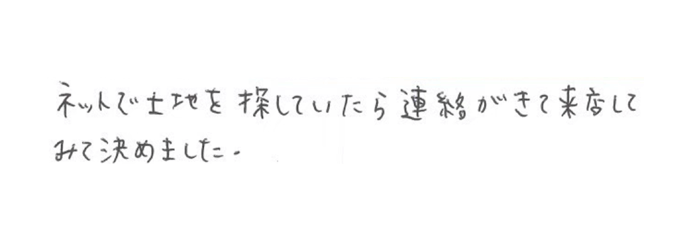 ネットで土地を探していたら連絡がきて来店して
みて決めました.